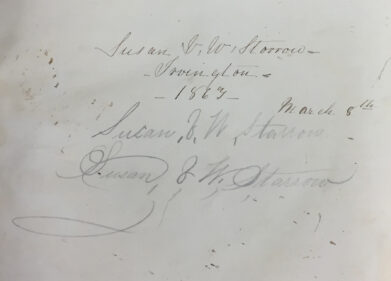 Susan V. W. Storrow
Irvington
1867
March 8th
Susan, V, W, Starrow
Susan, V, W, Starrow